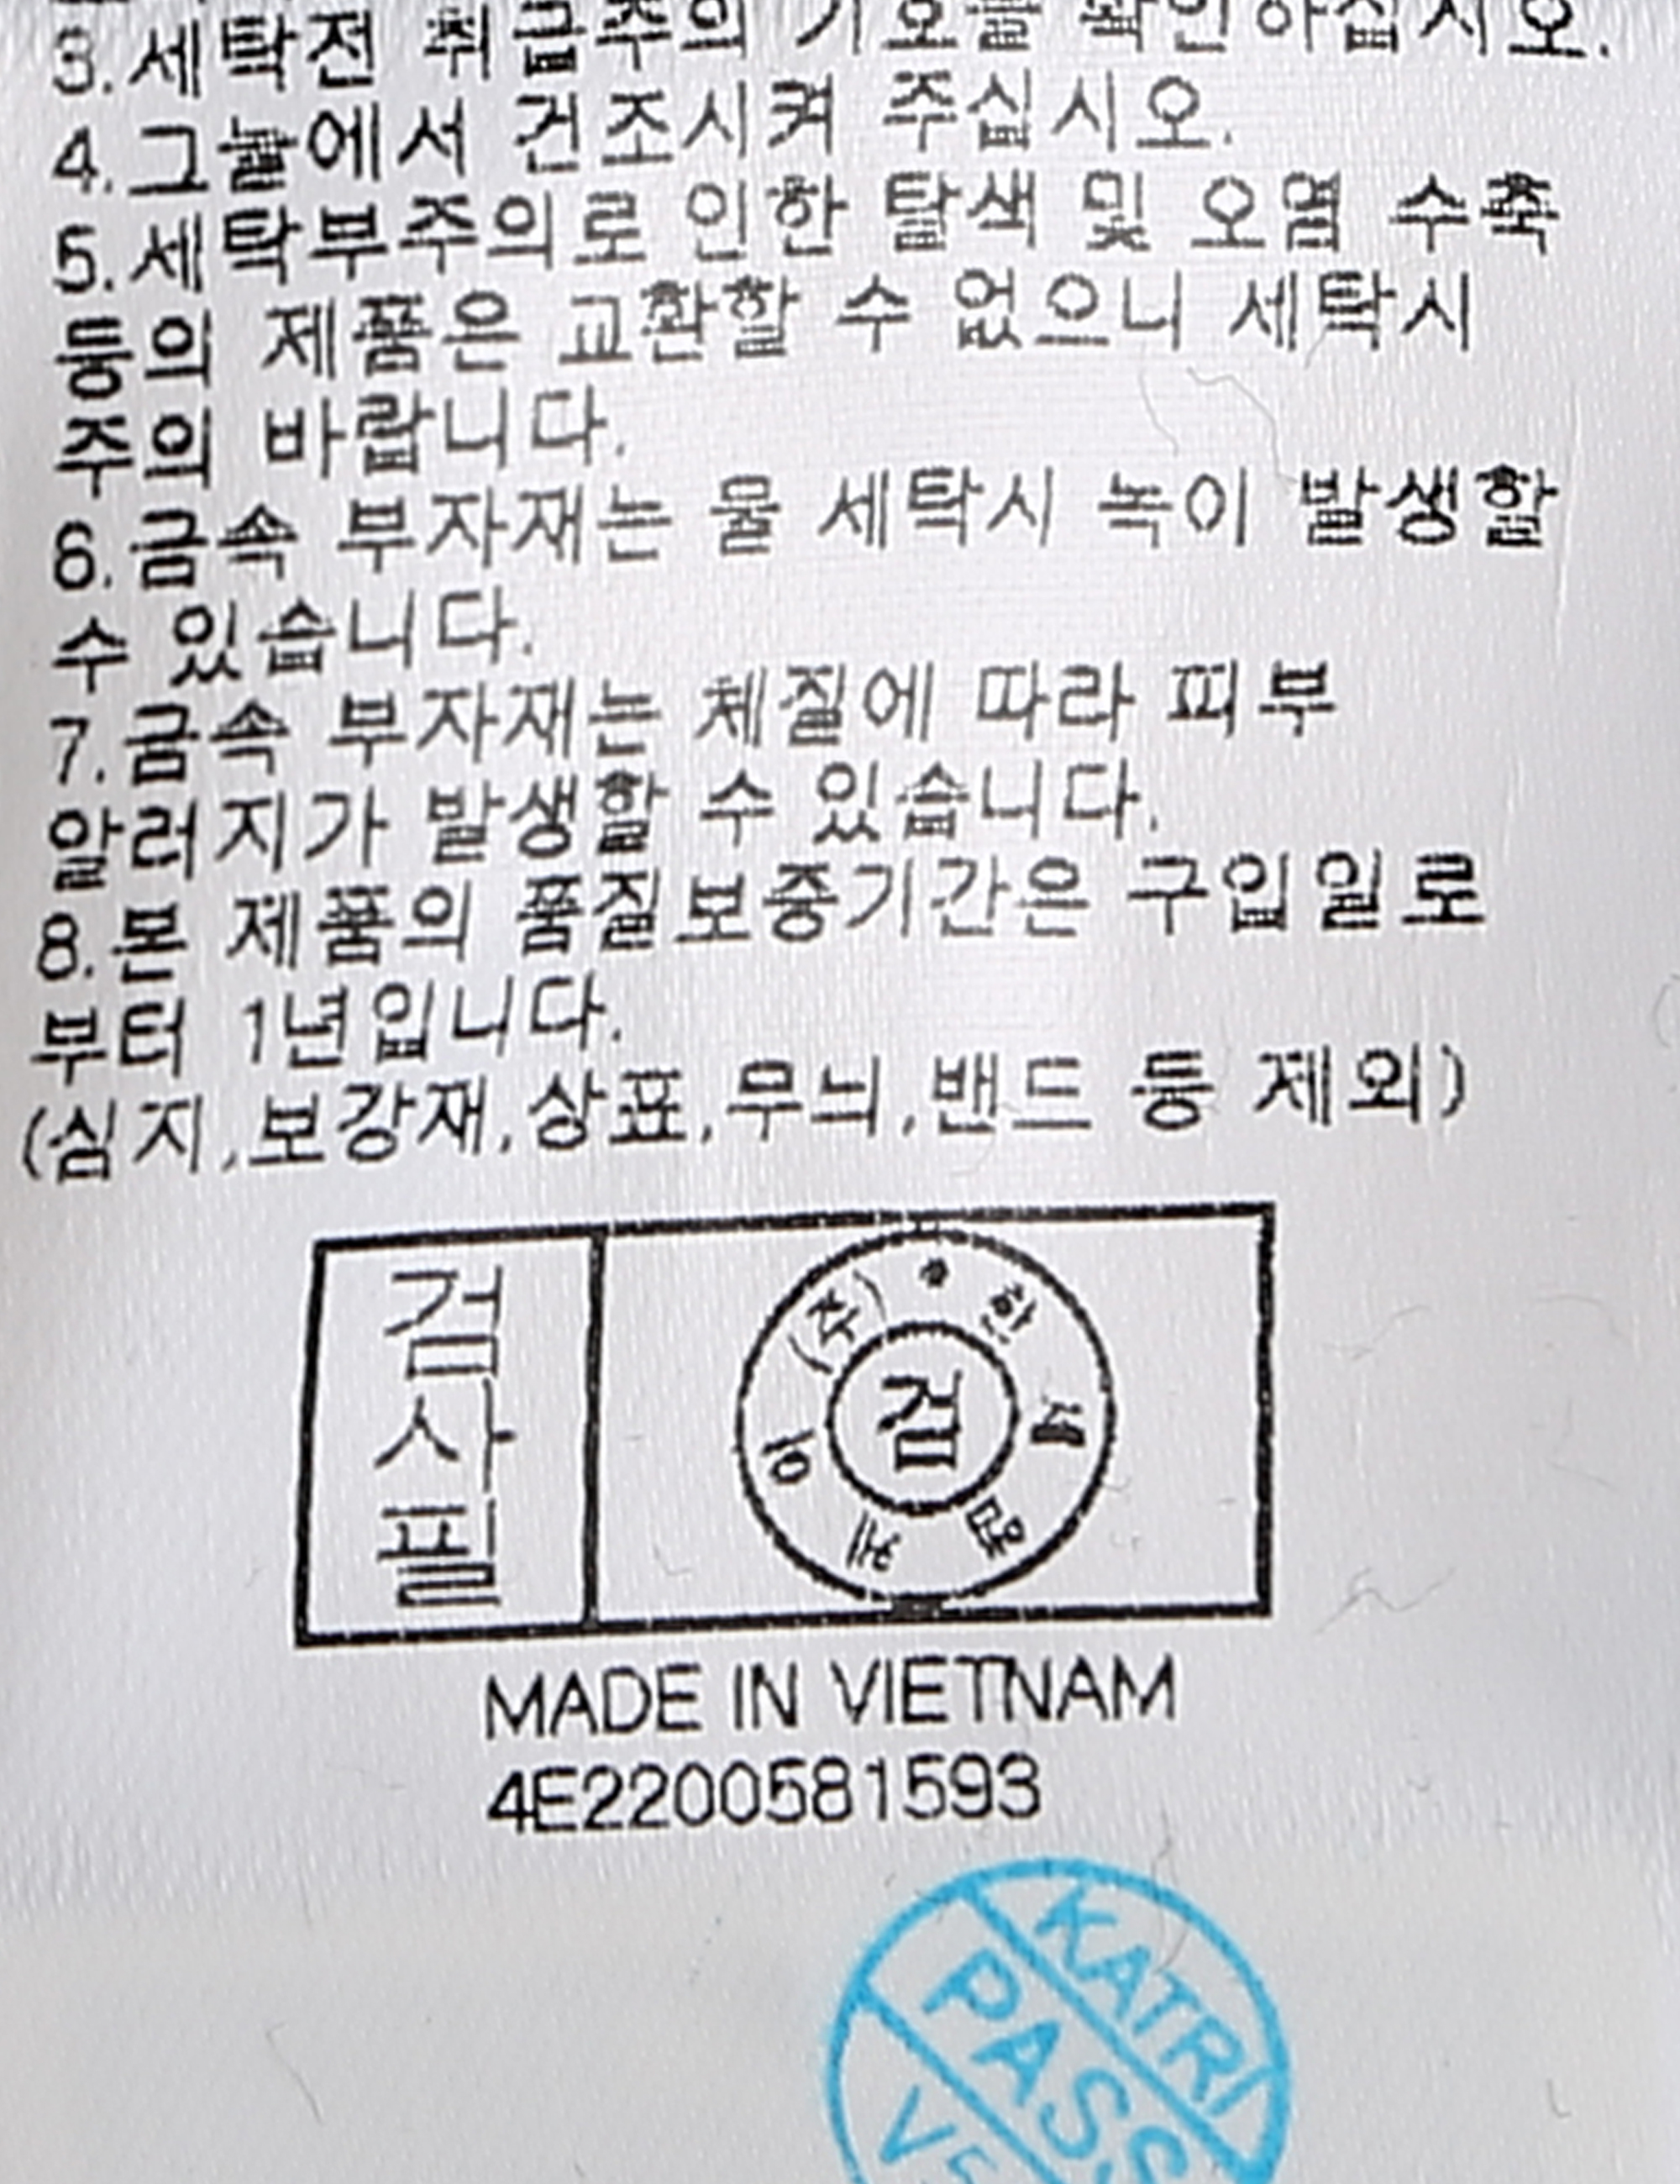 3.세탁전 취급주의 기호를 확인하십시오.
4.그늘에서 건조시켜 주십시오.
5.세탁부주의로 인한 탈색 및 오염 수축
등의 제품은 교환할 수 없으니 세탁시
주의 바랍니다.
6.금속 부자재는 물 세탁시 녹이 발생할
수 있습니다.
7.금속 부자재는 체질에 따라 피부
알러지가 발생할 수 있습니다.
8.본 제품의 품질보증기간은 구입일로
부터 1년입니다.
(심지,보강재,상표,무늬,밴드 등 제외)
검사필
(주)한세엠케이
검
MADE IN VIETNAM
4E2200581593
KATRI
PASS
V5